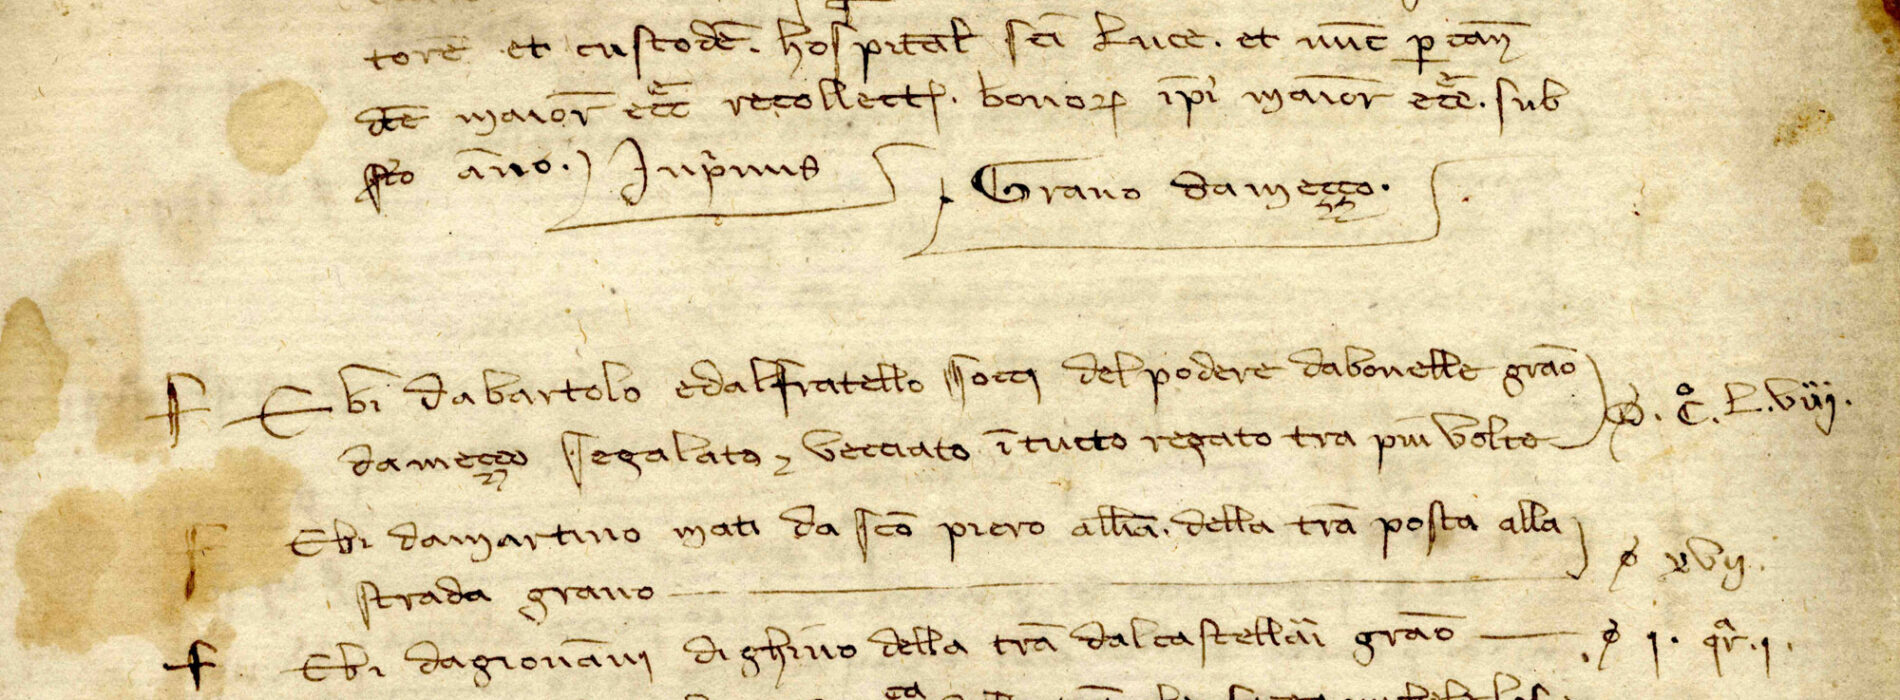 torē et custodē. hospital sc̄i Luce. et nūc p cam̄
dc̄e maior ecc̄ recollect. bonor ip̄i maior ecc̄e. sub
sc̄o anno. Inp̄imis Grano da meçço.
f Ebi da bartolo edalfratello socci del podere dabonelle grāo ø. C. L.viij.
dameçço segalato, vecciato ī tucto regato tra piu volte
f Ebi damartino mati da sc̄o piero allia. della trā posta alla ø xvij.
strada grano
f Ebi dagiovāni dighino della trā dalcastellāi grāo ø j. qr. j.